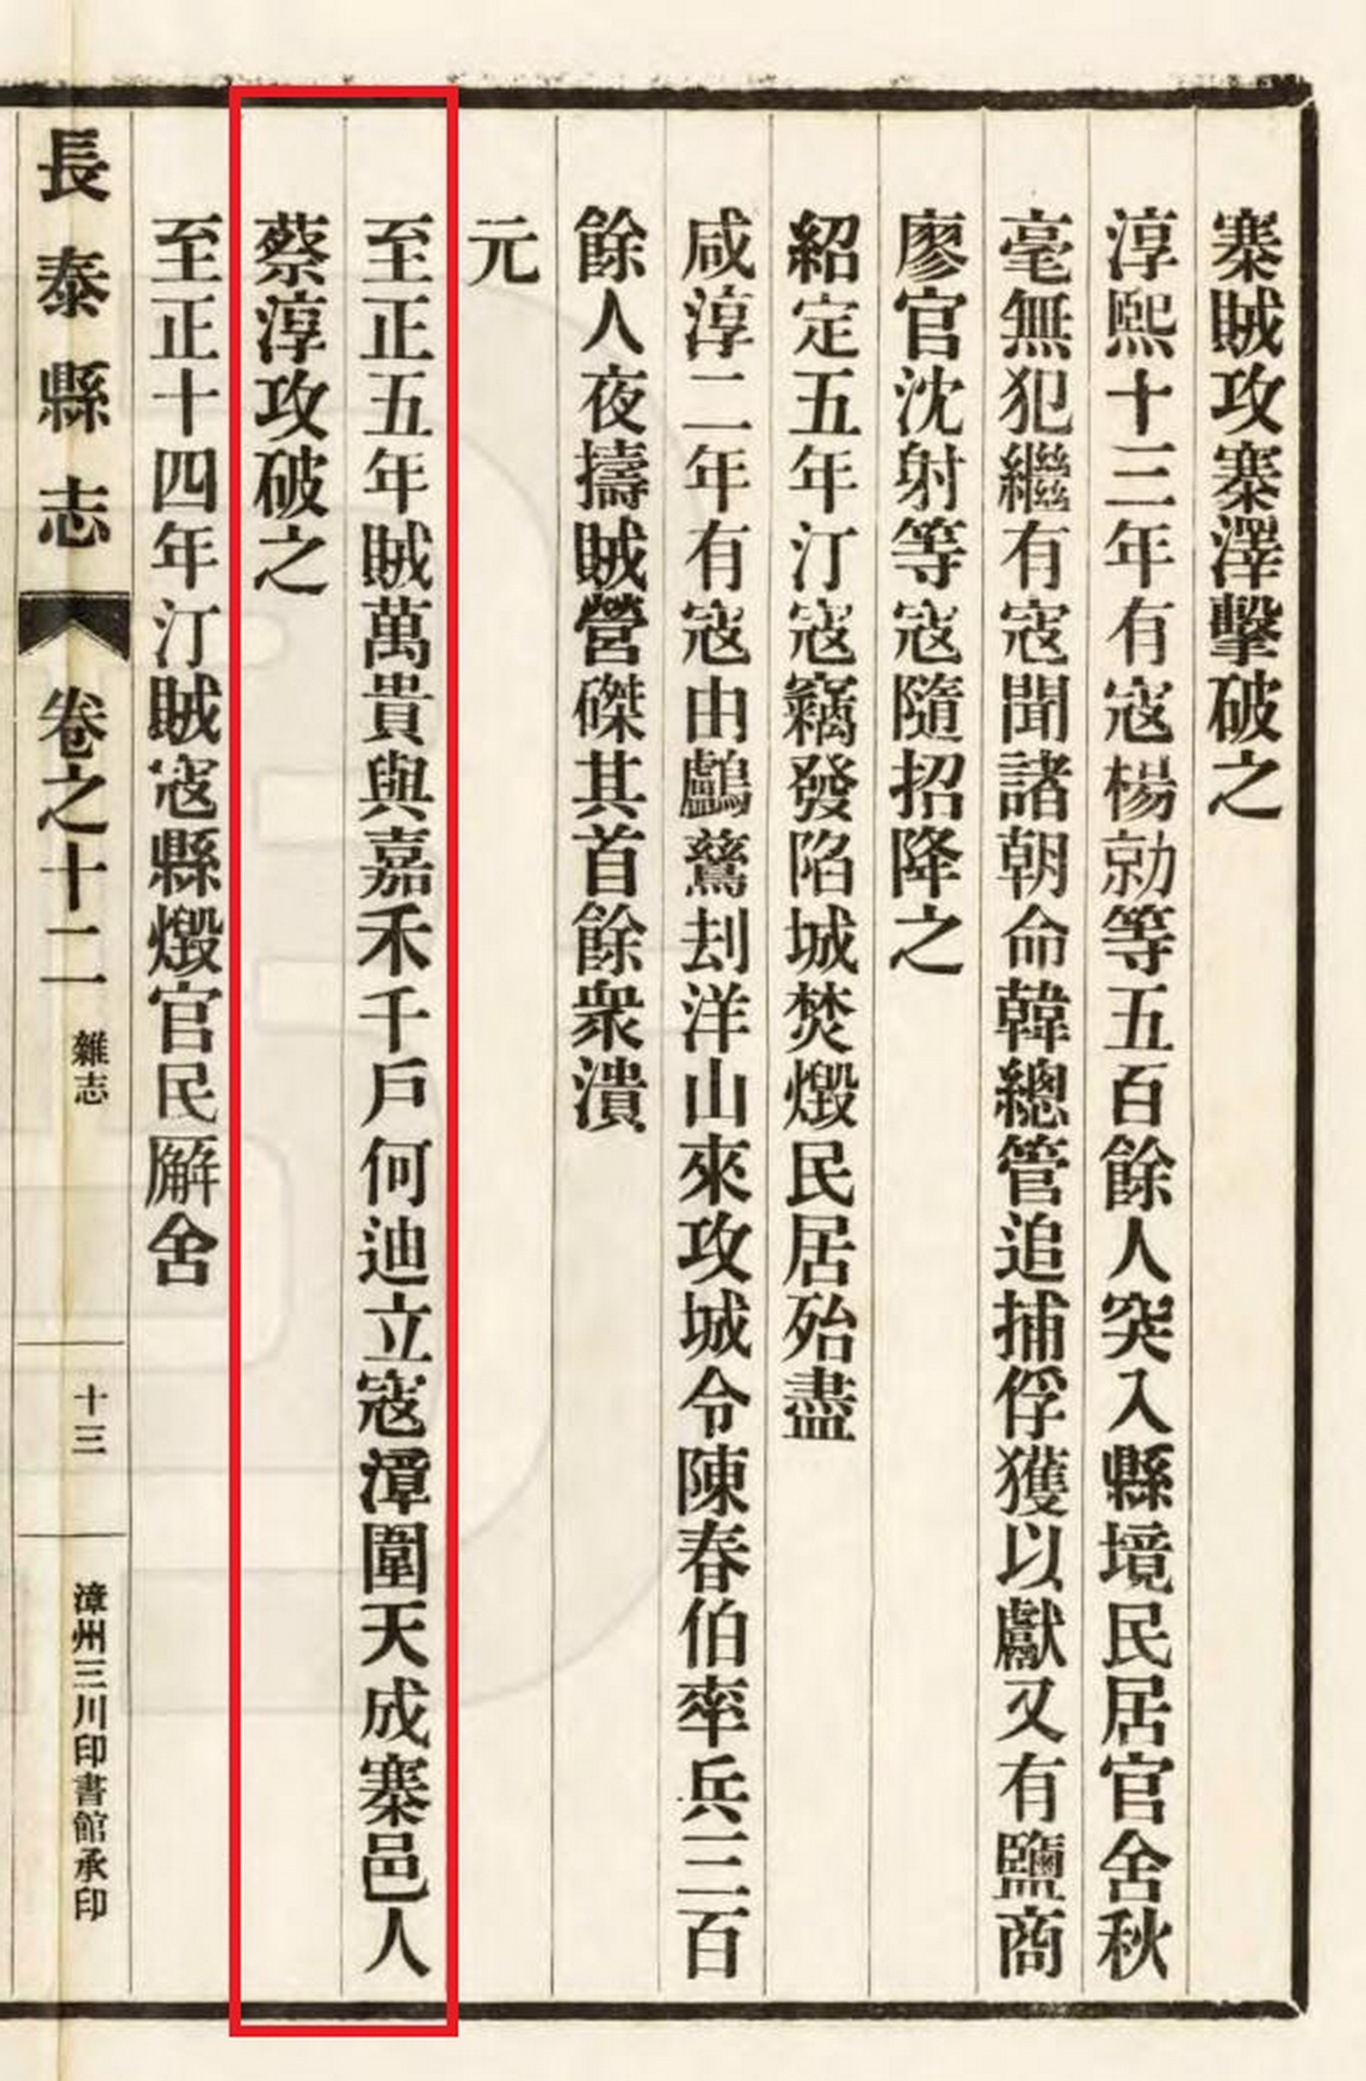 寨賊攻寨澤擊破之
淳熙十三年有寇楊勍等五百餘人突入縣境民居官舍秋
毫無犯繼有寇聞諸朝命韓總管追捕俘獲以獻又有鹽商
廖官沈射等寇隨招降之
紹定五年汀寇竊發陷城焚燬民居殆盡
咸淳二年有寇由鸕鶿刦洋山來攻城令陳春伯率兵三百
餘人夜擣賊營磔其首餘衆潰
元
至正五年賊萬貴與嘉禾千戶何迪立寇漳圍天成寨邑人
蔡淳攻破之
至正十四年汀賊寇縣燬官民廨舍
長泰縣志 卷之十二 雜志 十三 漳州三川印書館承印